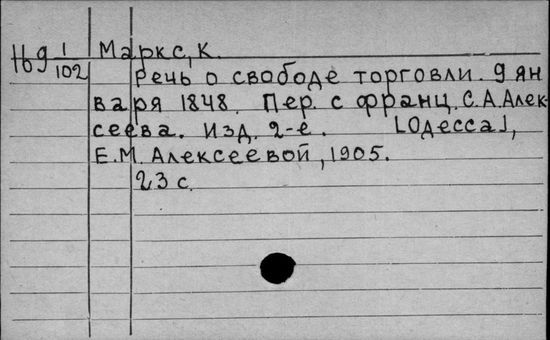 Маркс, К.
1/102
Речь о свободе торговли. 9 ян
варя 1848. Пер. с франц. С.А.Алек-
сеева. Изд. 2-е. [Одесса],
Е.М. Алексеевой, 1905.
23 с.